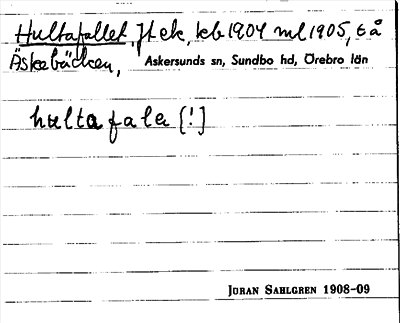 Hultafallet, Jt ek, kb 1904 ml 1905, t å
Äskebäcken, Askersunds sn, Sundbo hd, Örebro län
hultafala [!]
JÖRAN SAHLGREN 1908-09